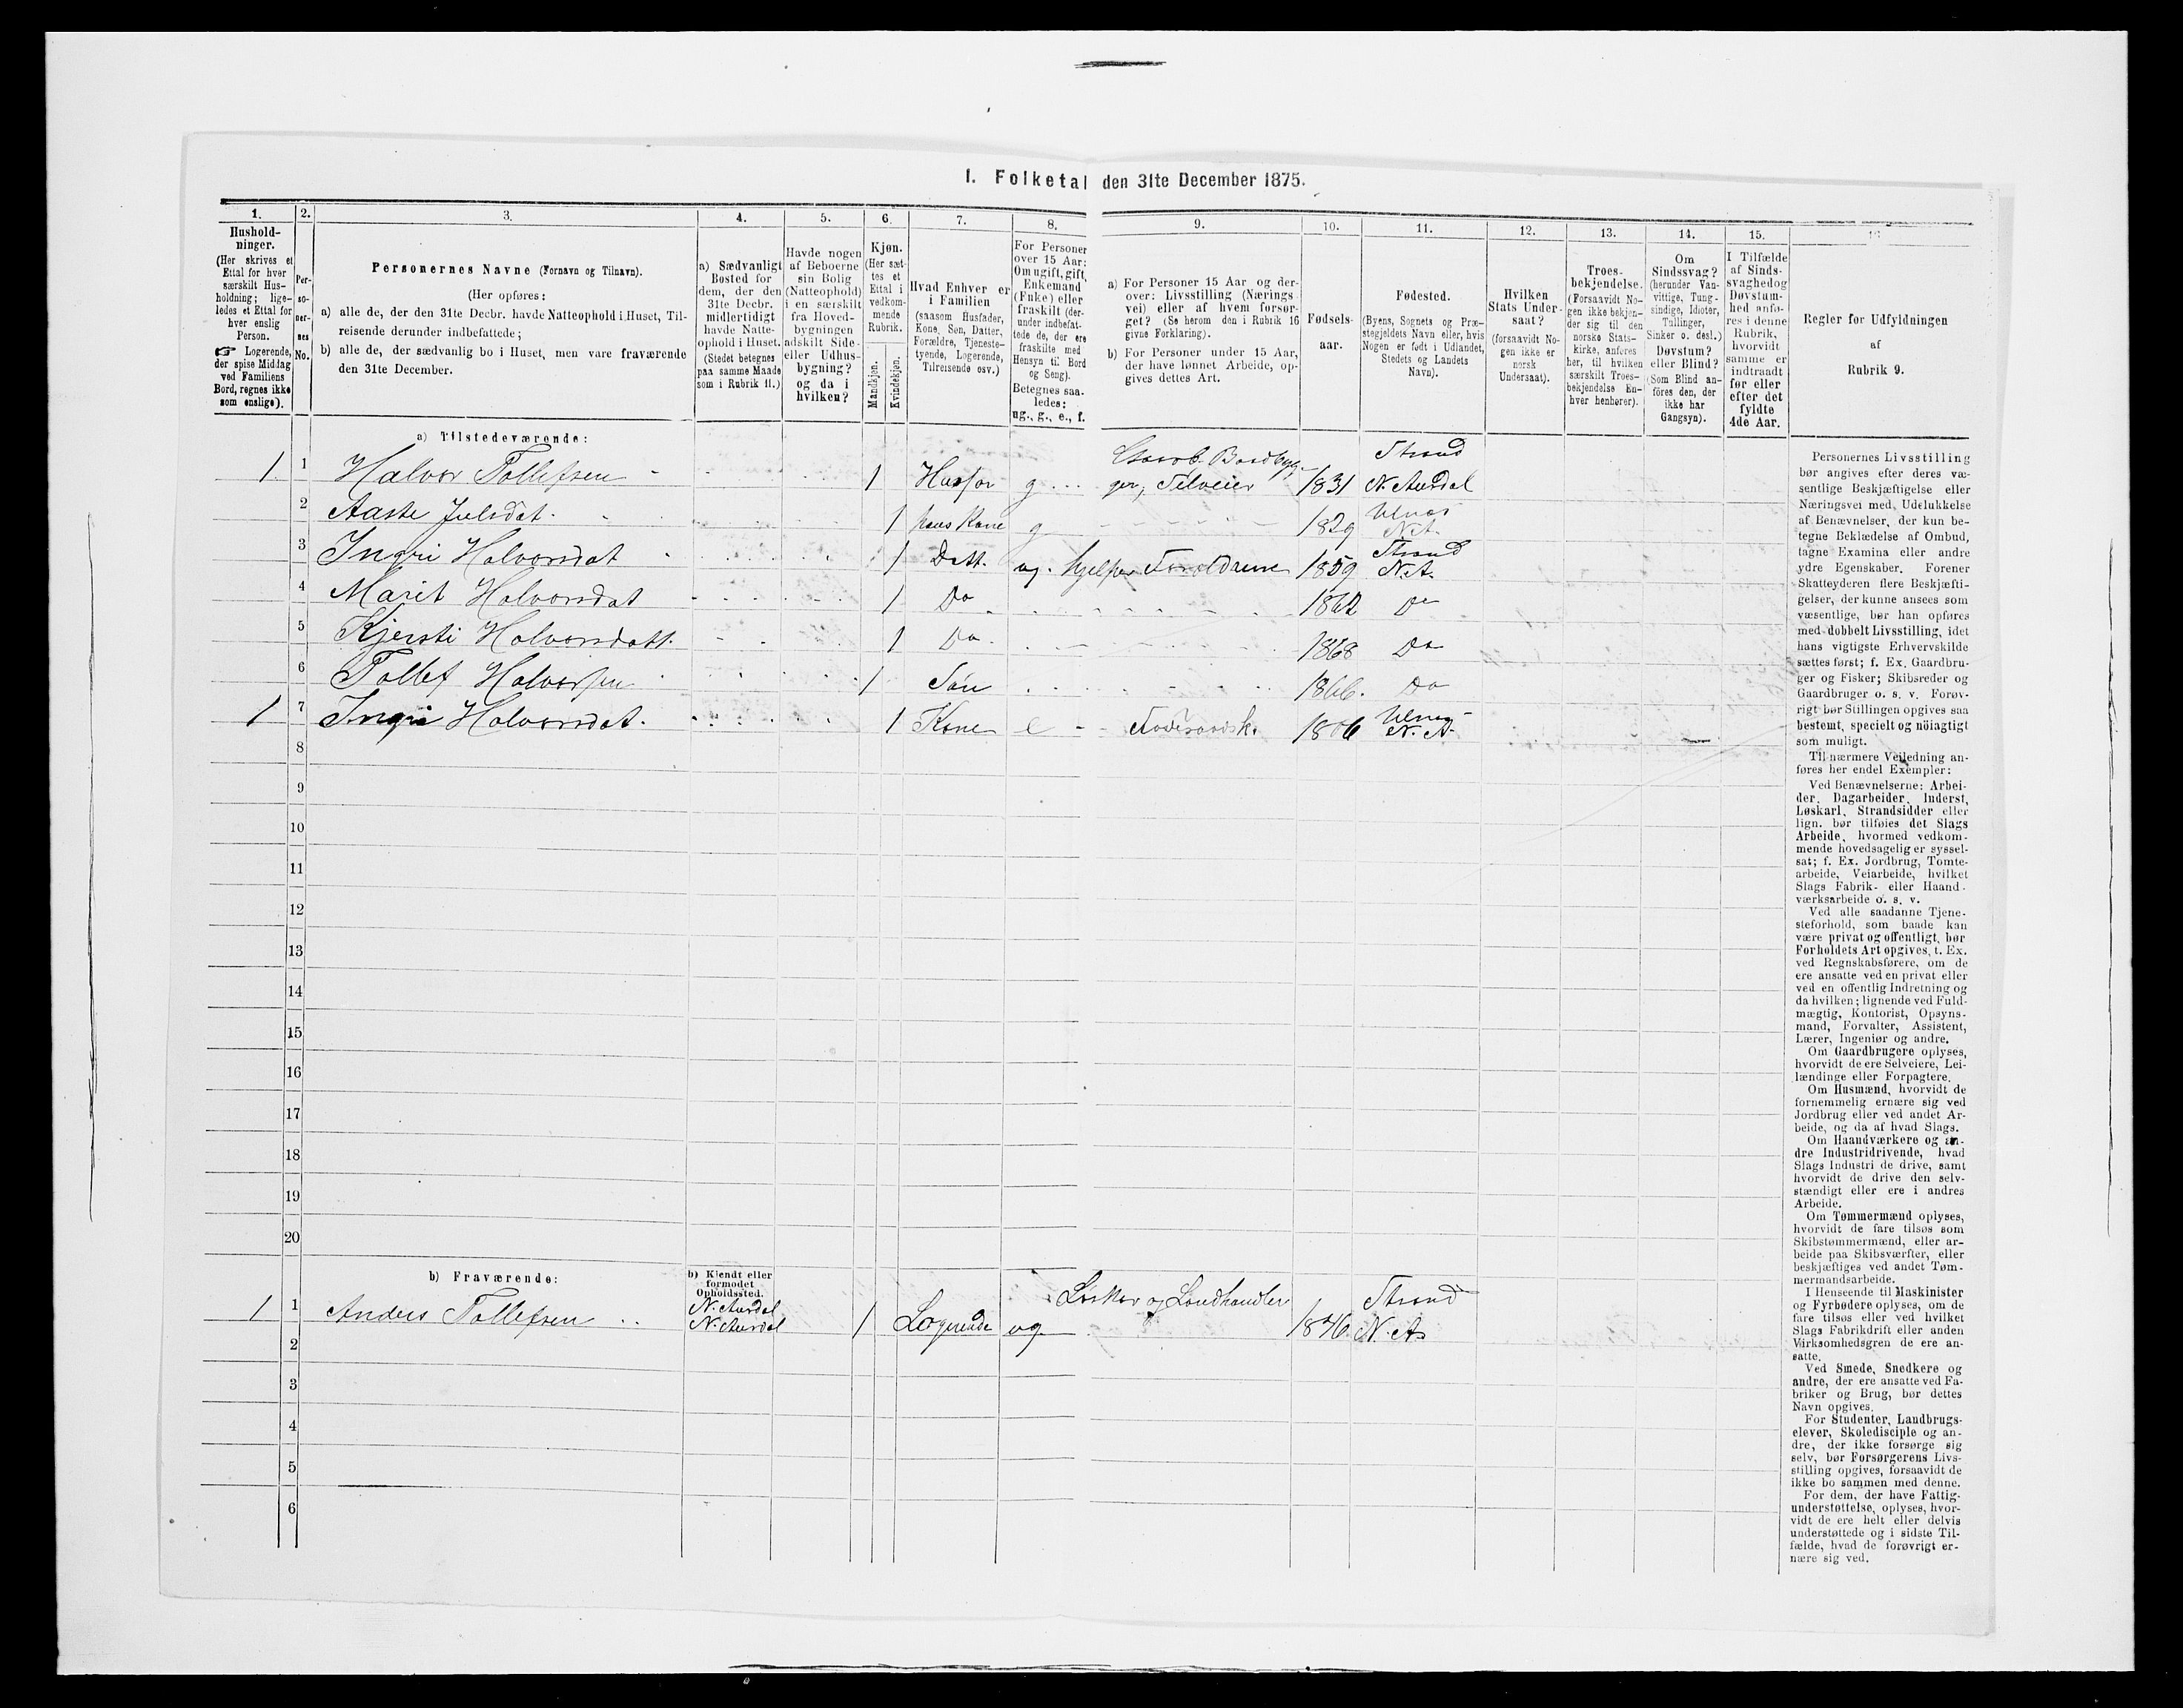 I. Folketal den 31te December 1875.
1.
Hushold-
ninger.
(Her skrives et
Ettal for hver
særskilt Hus-
holdning; lige-
ledes et Ettal for
hver enslig
Person.
☞ Logerende,
der spise Middag
ved Familiens
Bord, regnes ikke
som enslige).
2.
Per-
so-
ner-
nes
No.
3.
Personernes Navne (Fornavn og Tilnavn).
(Her opføres:
a) alle de, der den 31te Decbr. havde Natteophold i Huset, Til-
reisende derunder indbefattede;
b) alle de, der sædvanlig bo i Huset, men vare fraværende
den 31te December.
4.
a) Sædvanligt
Bosted for
dem, der den
31te Decbr.
midlertidigt
havde Natte-
ophold i Huset.
(Stedet betegnes
paa samme Maade
som i Rubrik 11.)
5.
Havde nogen
af Beboerne
sin Bolig
(Natteophold)
i en særskilt
fra Hoved-
bygningen
adskilt Side-
eller Udhus-
bygning?
og da i
hvilken?
6.
Kjøn.
(Her sæt-
tes et
Ettal i
vedkom-
mende
Rubrik.
Mandkjøn.
Kvindekjøn.
7.
Hvad Enhver er
i Familien
(saasom Husfader,
Kone, Søn, Datter,
Forældre, Tjeneste-
tyende, Logerende,
Tilreisende osv.)
8.
For Personer
over 15 Aar:
Om ugift, gift,
Enkemand
(Enke) eller
fraskilt (der-
under indbefat-
tede de, der ere
fraskilte med
Hensyn til Bord
og Seng).
Betegnes saa-
ledes:
ug., g., e., f.
9.
a) For Personer 15 Aar og der-
over: Livsstilling (Nærings
vei) eller af hvem forsør-
get? (Se herom den i Rubrik 16
givne Forklaring).
b) For Personer under 15 Aar,
der have lønnet Arbeide, op-
gives dettes Art.
10.
Fødsels-
aar.
11.
Fødested.
(Byens, Sognets og Præ-
stegjeldets Navn eller, hvis
Nogen er født i Udlandet,
Stedets og Landets
Navn).
12.
Hvilken
Stats Under-
saat?
(forsaavidt No-
gen ikke er
norsk
Undersaat).
13.
Troes-
bekjendelse.
(Forsaavidt No-
gen ikke bekjen-
der sig til den
norske Stats-
kirke, anføres
her, til hvilken
særskilt Troes-
bekjendelse En-
hver henhører).
14.
Om
Sindssvag?
(herunder Van-
vittige, Tung-
sindige, Idioter,
Tullinger,
Sinker o. desl.)
Døvstum?
eller Blind?
(Som Blind an-
føres den, der
ikke har
Gangsyn).
15.
I Tilfælde
af Sinds-
svaghed og
Døvstum-
hed anfø-
res i denne
Rubrik,
hvorvidt
samme er
indtraadt
før eller
efter det
fyldte
4de Aar.
Regler for Udfyldningen
af
Rubrik 9.
a) Tilstedeværende:
1 1 Halvor Tollefsen 1 Husfar g Gaardb. Bordbyg- ger, Selveier 1831 Strand N. Aurdal
2 Aaste Julsdat. 1 hans Kone g 1829 Ulnes N.A.
3 Ingri Halvorsdat 1 Datt. ug. hjelper Forældrene 1859 Strand N.A.
4 Marit Halvorsdat 1 Do 1862 Do
5 Kjersti Halvorsdatt. 1 Do 1868 Do
6 Tollef Halvorsen 1 Søn 1866. Do
1 7 Ingri Halvorsdat. 1 Kone e 1806 Ulnes N. A.
8
9
10
11
12
13
14
15
16
17
18
19
20
b) Fraværende:
b) Kjendt eller
formodet
Opholdssted.
1 1 Anders Tollefsen N. Aurdal N. Aurdal 1 Logerende ug Løskar og Landhandler 1846 Strand N. A.
2
3
4
5
6
Personernes Livsstilling
bør angives efter deres væ-
sentlige Beskjæftigelse eller
Næringsvei med Udelukkelse
af Benævnelser, der kun be-
tegne Beklædelse af Ombud,
tagne Examina eller andre
ydre Egenskaber. Forener
Skatteyderen flere Beskjæfti-
gelser, der kunne ansees som
væsentlige, bør han opføres
med dobbelt Livsstilling, idet
hans vigtigste Erhvervskilde
sættes først; f. Ex. Gaardbru-
ger og Fisker; Skibsreder og
Gaardbruger o. s. v. Forøv-
rigt bør Stillingen opgives saa
bestemt, specielt og nöiagtigt
som muligt.
Til nærmere Veiledning an-
føres her endel Exempler:
Ved Benævnelserne: Arbei-
der, Dagarbeider, Inderst,
Løskarl, Strandsidder eller
lign. bør tilføies det Slags
Arbeide, hvormed vedkom-
mende hovedsagelig er syssel-
sat; f. Ex. Jordbrug, Tomte-
arbeide, Veiarbeide, hvilket
Slags Fabrik- eller Haand-
værksarbeide o. s. v.
Ved alle saadanne Tjene-
steforhold, som baade kan
være privat og offentligt, bør
Forholdets Art opgives, t. Ex.
ved Regnskabsførere, om de
ere ansatte ved en privat eller
ved en offentlig Indretning og
da hvilken; lignende ved Fuld-
mægtig, Kontorist, Opsyns-
mand, Forvalter, Assistent,
Lærer, Ingeniør og andre.
Om Gaardbrugere oplyses,
hvorvidt de ere Selveiere, Lei-
lændinge eller Forpagtere.
Om Husmænd, hvorvidt de
fornemmelig ernære sig ved
Jordbrug eller ved andet Ar-
beide, og da af hvad Slags.
Om Haandværkere og an-
dre Industridrivende, hvad
Slags Industri de drive, samt
hvorvidt de drive den selv-
stændigt eller ere i andres
Arbeide.
Om Tømmermænd oplyses,
hvorvidt de fare tilsøs som
Skibstømmermænd, eller ar-
beide paa Skibsværfter, eller
beskjæftiges ved andet Tøm-
mermandsarbeide.
I Henseende til Maskinister
og Fyrbødere oplyses, om de
fare tilsøs eller ved hvilket
Slags Fabrikdrift eller anden
Virksomhedsgren de ere an-
satte.
Ved Smede, Snedkere og
andre, der ere ansatte ved Fa-
briker og Brug, bør dettes
Navn opgives.
For Studenter, Landbrugs-
elever, Skoledisciple og an-
dre, der ikke forsørge sig
selv, bør Forsørgerens Livs-
stilling opgives, forsaavidt de
ikke bo sammen med denne.
For dem, der have Fattig-
understøttelse, oplyses, hvor-
vidt de ere helt eller delvis
understøttede og i sidste Til-
fælde, hvad de forøvrigt er-
nære sig ved.